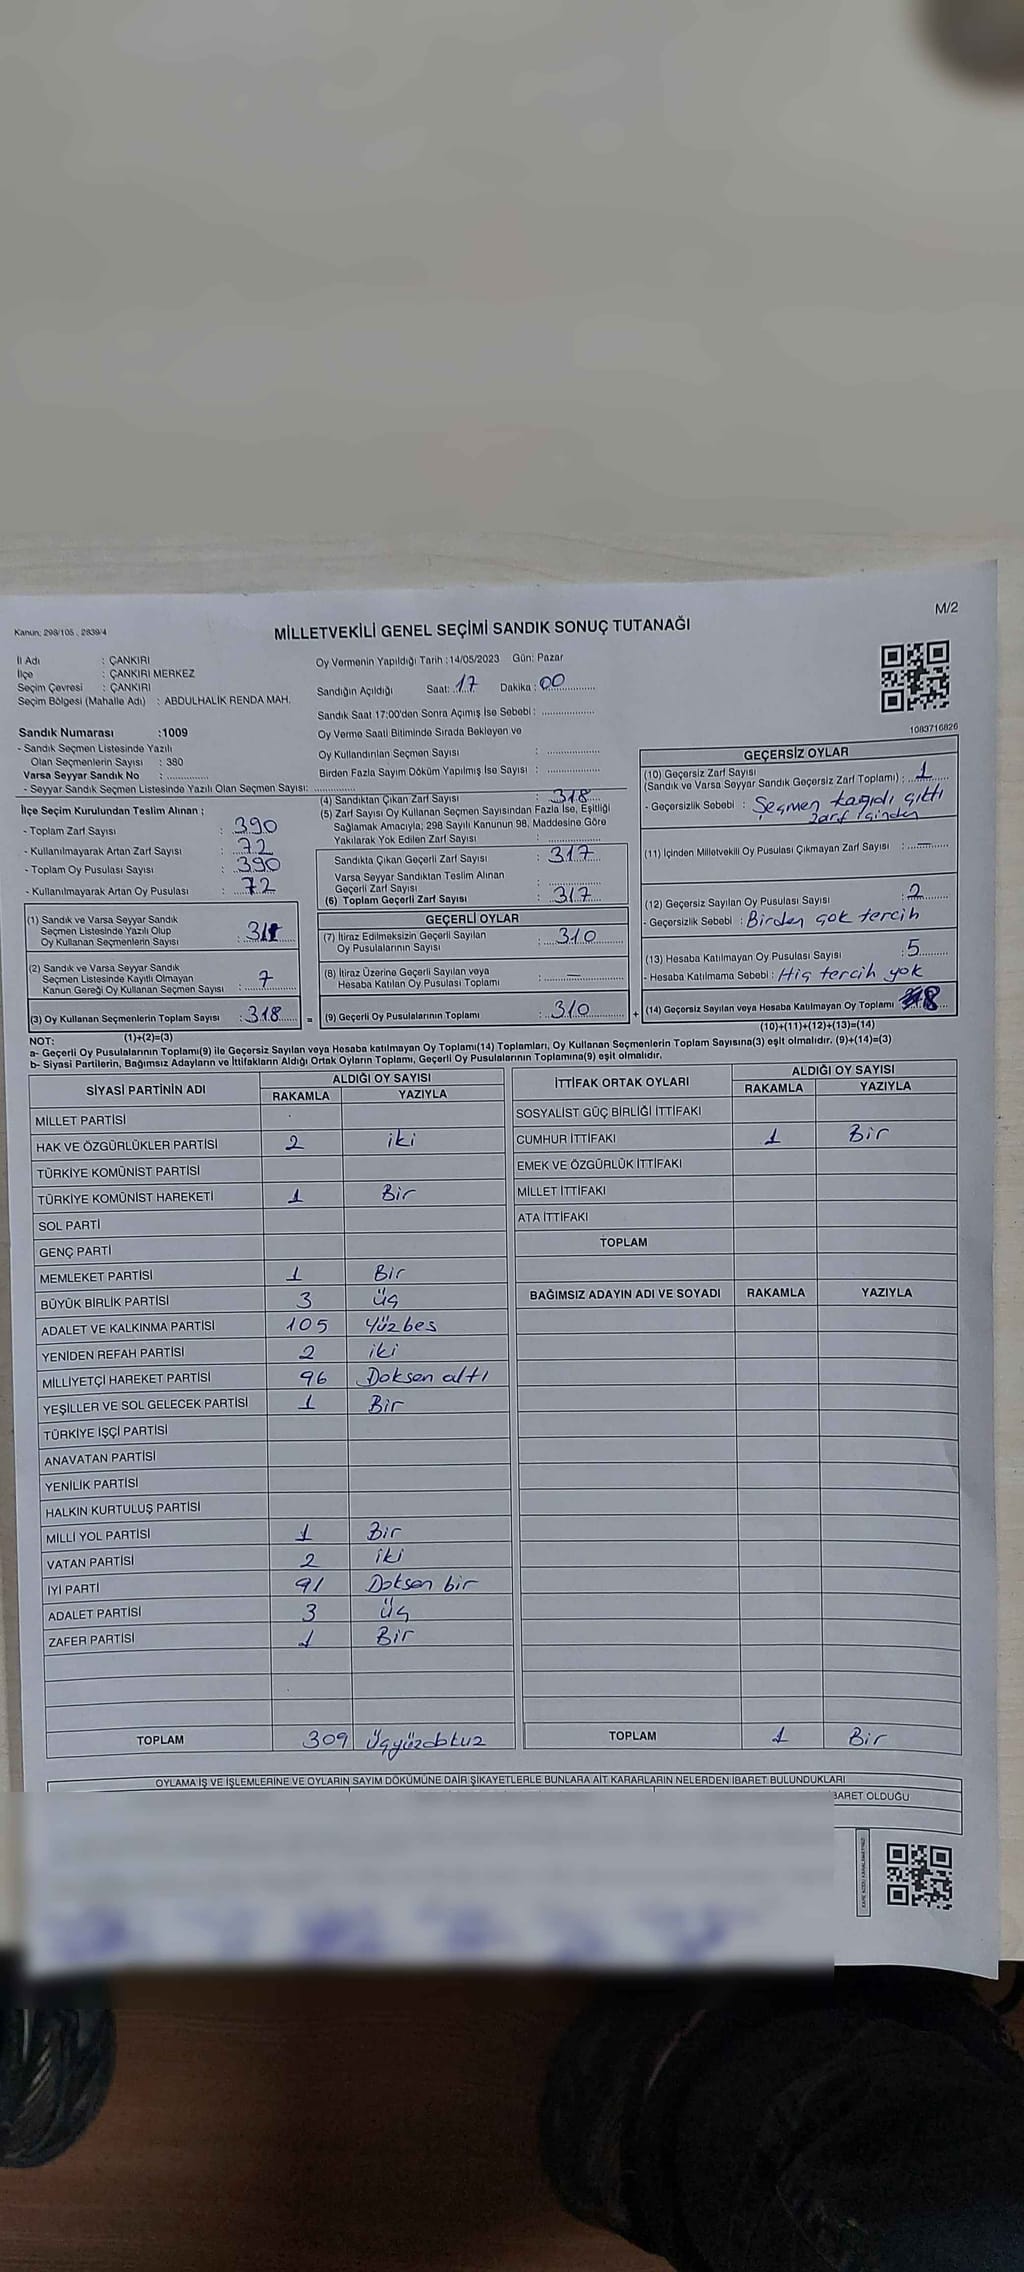 M/2
Kanun; 298/105 , 2839/4
MİLLETVEKİLİ GENEL SEÇİMİ SANDIK SONUÇ TUTANAĞI
İl Adı : ÇANKIRI
İlçe : ÇANKIRI MERKEZ
Seçim Çevresi : ÇANKIRI
Seçim Bölgesi (Mahalle Adı) : ABDULHALİK RENDA MAH.
Oy Vermenin Yapıldığı Tarih :14/05/2023 Gün: Pazar
Sandığın Açıldığı Saat: 17 Dakika : 00
Sandık Saat 17:00'den Sonra Açımış İse Sebebi :
Oy Verme Saati Bitiminde Sırada Bekleyen ve
Oy Kullandırılan Seçmen Sayısı :
Birden Fazla Sayım Döküm Yapılmış İse Sayısı :
1083716826
Sandık Numarası :1009
- Sandık Seçmen Listesinde Yazılı
Olan Seçmenlerin Sayısı : 380
Varsa Seyyar Sandık No :
- Seyyar Sandık Seçmen Listesinde Yazılı Olan Seçmen Sayısı:
İlçe Seçim Kurulundan Teslim Alınan ;
- Toplam Zarf Sayısı : 390
- Kullanılmayarak Artan Zarf Sayısı : 72
- Toplam Oy Pusulası Sayısı : 390
- Kullanılmayarak Artan Oy Pusulası : 72
(1) Sandık ve Varsa Seyyar Sandık
Seçmen Listesinde Yazılı Olup
Oy Kullanan Seçmenlerin Sayısı :
(2) Sandık ve Varsa Seyyar Sandık
Seçmen Listesinde Kayıtlı Olmayan
Kanun Gereği Oy Kullanan Seçmen Sayısı : 7
(3) Oy Kullanan Seçmenlerin Toplam Sayısı : 318 =
(1)+(2)=(3)
(4) Sandıktan Çıkan Zarf Sayısı : 318
(5) Zarf Sayısı Oy Kullanan Seçmen Sayısından Fazla İse, Eşitliği
Sağlamak Amacıyla, 298 Sayılı Kanunun 98. Maddesine Göre
Yakılarak Yok Edilen Zarf Sayısı :
Sandıkta Çıkan Geçerli Zarf Sayısı : 317
Varsa Seyyar Sandıktan Teslim Alınan
Geçerli Zarf Sayısı :
(6) Toplam Geçerli Zarf Sayısı : 317
GEÇERLİ OYLAR
(7) İtiraz Edilmeksizin Geçerli Sayılan
Oy Pusulalarının Sayısı : 310
(8) İtiraz Üzerine Geçerli Sayılan veya
Hesaba Katılan Oy Pusulası Toplamı : —
(9) Geçerli Oy Pusulalarının Toplamı : 310 +
GEÇERSİZ OYLAR
(10) Geçersiz Zarf Sayısı
(Sandık ve Varsa Seyyar Sandık Geçersiz Zarf Toplamı) : 1
- Geçersizlik Sebebi : Seçmen kağıdı çıktı
zarf içinden
(11) İçinden Milletvekili Oy Pusulası Çıkmayan Zarf Sayısı : —
(12) Geçersiz Sayılan Oy Pusulası Sayısı : 2
- Geçersizlik Sebebi : Birden çok tercih
(13) Hesaba Katılmayan Oy Pusulası Sayısı : 5
- Hesaba Katılmama Sebebi : Hiç tercih yok
(14) Geçersiz Sayılan veya Hesaba Katılmayan Oy Toplamı 8
(10)+(11)+(12)+(13)=(14)
NOT:
a- Geçerli Oy Pusulalarının Toplamı(9) ile Geçersiz Sayılan veya Hesaba katılmayan Oy Toplamı(14) Toplamları, Oy Kullanan Seçmenlerin Toplam Sayısına(3) eşit olmalıdır. (9)+(14)=(3)
b- Siyasi Partilerin, Bağımsız Adayların ve İttifakların Aldığı Ortak Oyların Toplamı, Geçerli Oy Pusulalarının Toplamına(9) eşit olmalıdır.
SİYASİ PARTİNİN ADI ALDIĞI OY SAYISI
RAKAMLA YAZIYLA
MİLLET PARTİSİ
HAK VE ÖZGÜRLÜKLER PARTİSİ 2 iki
TÜRKİYE KOMÜNİST PARTİSİ
TÜRKİYE KOMÜNİST HAREKETİ 1 Bir
SOL PARTİ
GENÇ PARTİ
MEMLEKET PARTİSİ 1 Bir
BÜYÜK BİRLİK PARTİSİ 3 üç
ADALET VE KALKINMA PARTİSİ 105 Yüzbeş
YENİDEN REFAH PARTİSİ 2 iki
MİLLİYETÇİ HAREKET PARTİSİ 96 Doksan altı
YEŞİLLER VE SOL GELECEK PARTİSİ 1 Bir
TÜRKİYE İŞÇİ PARTİSİ
ANAVATAN PARTİSİ
YENİLİK PARTİSİ
HALKIN KURTULUŞ PARTİSİ
MİLLİ YOL PARTİSİ 1 Bir
VATAN PARTİSİ 2 iki
İYİ PARTİ 91 Doksan bir
ADALET PARTİSİ 3 üç
ZAFER PARTİSİ 1 Bir
TOPLAM 309 üçyüzdokuz
İTTİFAK ORTAK OYLARI ALDIĞI OY SAYISI
RAKAMLA YAZIYLA
SOSYALİST GÜÇ BİRLİĞİ İTTİFAKI
CUMHUR İTTİFAKI 1 Bir
EMEK VE ÖZGÜRLÜK İTTİFAKI
MİLLET İTTİFAKI
ATA İTTİFAKI
TOPLAM
BAĞIMSIZ ADAYIN ADI VE SOYADI RAKAMLA YAZIYLA
TOPLAM 1 Bir
OYLAMA İŞ VE İŞLEMLERİNE VE OYLARIN SAYIM DÖKÜMÜNE DAİR ŞİKAYETLERLE BUNLARA AİT KARARLARIN NELERDEN İBARET BULUNDUKLARI
BARET OLDUĞU